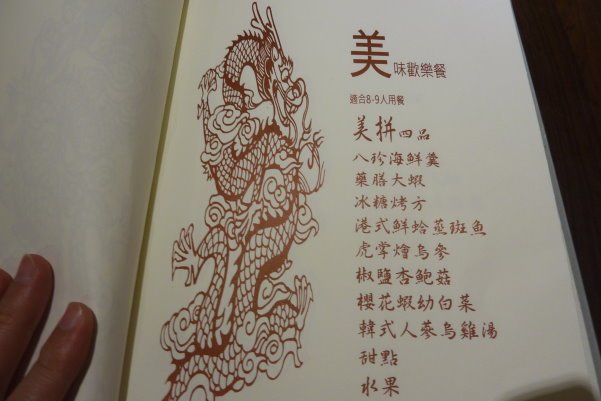 美味歡樂餐
適合8-9人用餐
美拼四品
八珍海鮮羹
藥膳大蝦
冰糖烤方
港式鮮蛤蒸斑魚
虎掌燴烏參
椒鹽杏鮑菇
櫻花蝦幼白菜
韓式人蔘烏雞湯
甜點
水果